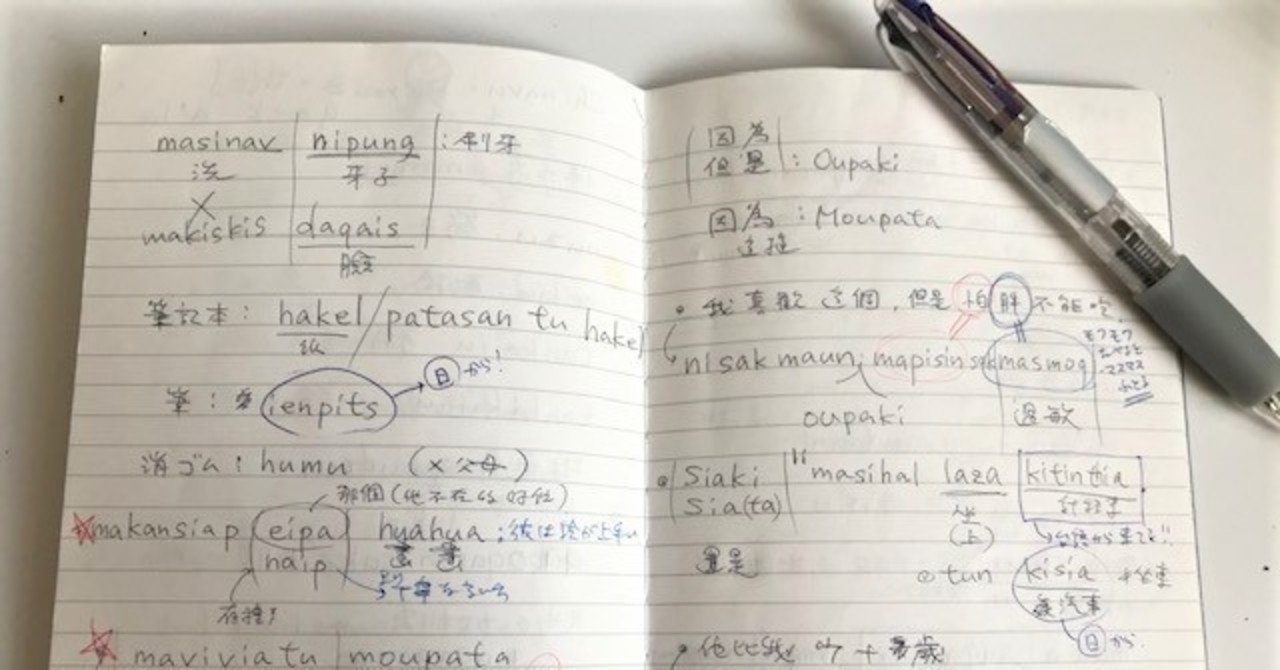 masinav nipung : 刷牙
洗 牙子
makiskis daqais
臉
筆記本: hakel/patasan tu hakel
紙
筆: ienpits 日から!
消ゴム: humu (×父母)
那個(他不在的好位)
makansiap eipa huahua
naip 畫 畫
在裡
maviviatu moupata
因為
但是 : Oupaki
因為 : Moupata
• 我喜歡這個, 但是 怕 胖 不能吃
nisak maun, mapisin masmog
oupaki 過敏
Siaki masihal laza kitintia
Sia(ta) 坐 計程車
(上) 台語から来てる!!
還是 tun kisia 坐車
汽車
日から
• 他比我 十 歲